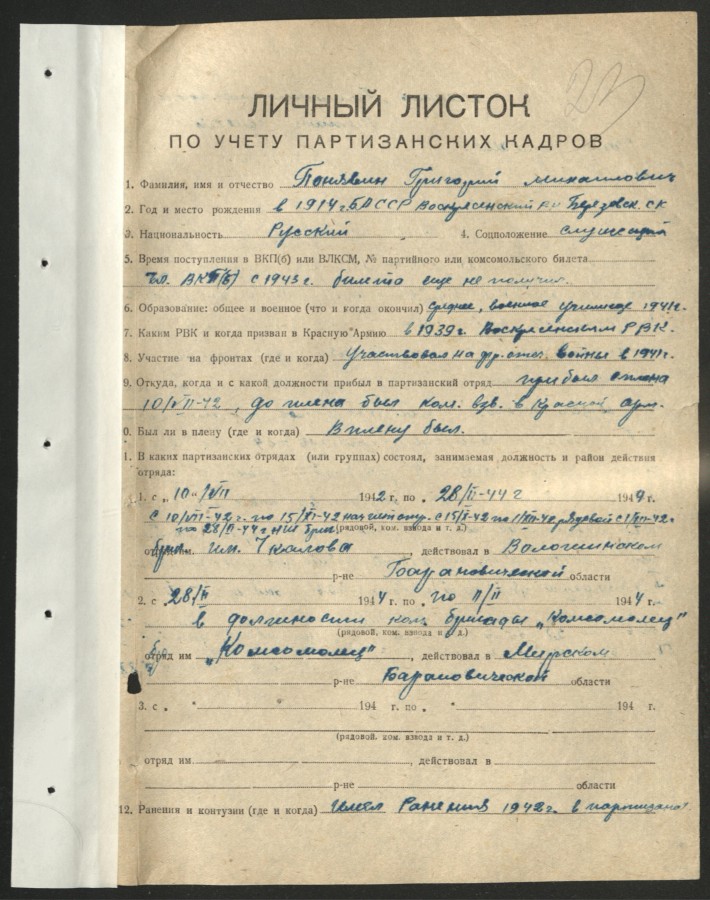 23
ЛИЧНЫЙ ЛИСТОК
ПО УЧЕТУ ПАРТИЗАНСКИХ КАДРОВ
1. Фамилия, имя и отчество Понявин Григорий Михаилович
2. Год и место рождения в 1914 г. БАССР Воскресенский р-н Березовск. с/с
3. Национальность Русский 4. Соцположение служащий
5. Время поступления в ВКП(б) или ВЛКСМ, № партийного или комсомольского билета
Чл. ВКП(б) с 1943 г. билета еще не получил.
6. Образование: общее и военное (что и когда окончил) среднее, военное училище 1941г.
7. Каким РВК и когда призван в Красную Армию в 1939 г. Воскресенским РВК.
8. Участие на фронтах (где и когда) Участвовал на фр. отеч. войны в 1941 г.
9. Откуда, когда и с какой должности прибыл в партизанский отряд прибыл с плена
10/VII-42, до плена был ком. взв. в Красной арм.
0. Был ли в плену (где и когда) В плену был.
1. В каких партизанских отрядах (или группах) состоял, занимаемая должность и район действия
отряда:
1. с „ 10 „ /VII 1942 г. по „ 28/II-44 г 1944 г.
с 10/VII-42 г. по 15/XI-42
по 28/II-44 г. НШ бриг
(рядовой, ком. взвода и т. д.)
отряд им. Чкалова, действовал в Воложинском
р-не Барановической области
2. с 28/II 1944 г. по „ по 11/II 1944 г.
в должности ком. бригады „Комсомолец"
(рядовой, ком. взвода и т. д.)
отряд им „Комсомолец", действовал в Мирском
р-не Барановической области
3. с „ „ 194 г. по „ „ 194 г.
(рядовой, ком. взвода и т. д.)
отряд им , действовал в
р-не области
12. Ранения и контузии (где и когда) Имел Ранения 1942 г. в партизанах